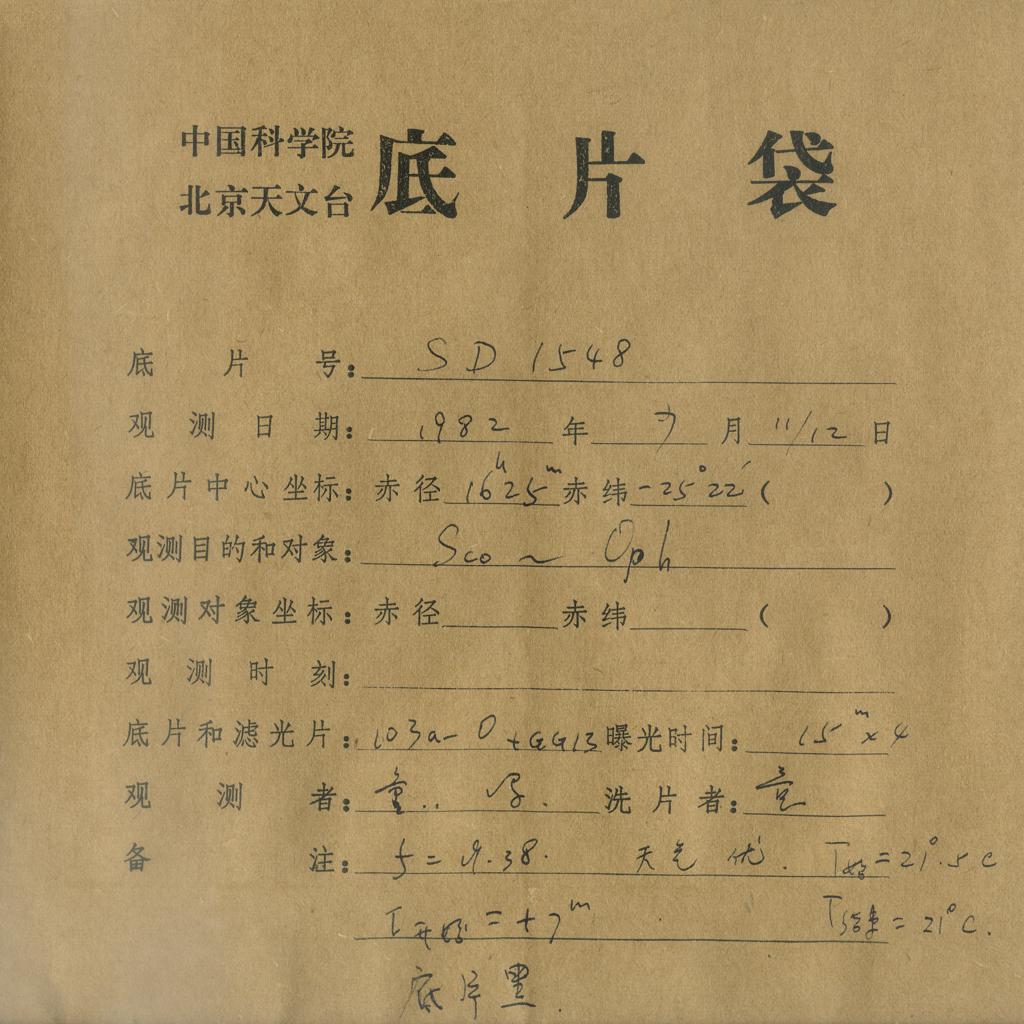 中国科学院
北京天文台
底片袋
底片号: SD 1548
观测日期: 1982 年 7 月 11/12 日
底片中心坐标: 赤径 16h25m 赤纬 -25°22′ ( )
观测目的和对象: Sco ~ Oph
观测对象坐标: 赤径 赤纬 ( )
观测时刻:
底片和滤光片: 103a-O +GG13 曝光时间: 15m×4
观测者: 洗片者:
备注: = 9.38. 天气 优. T始=21°.5C
开始 = +7m T结束 = 21°C.
底片黑.